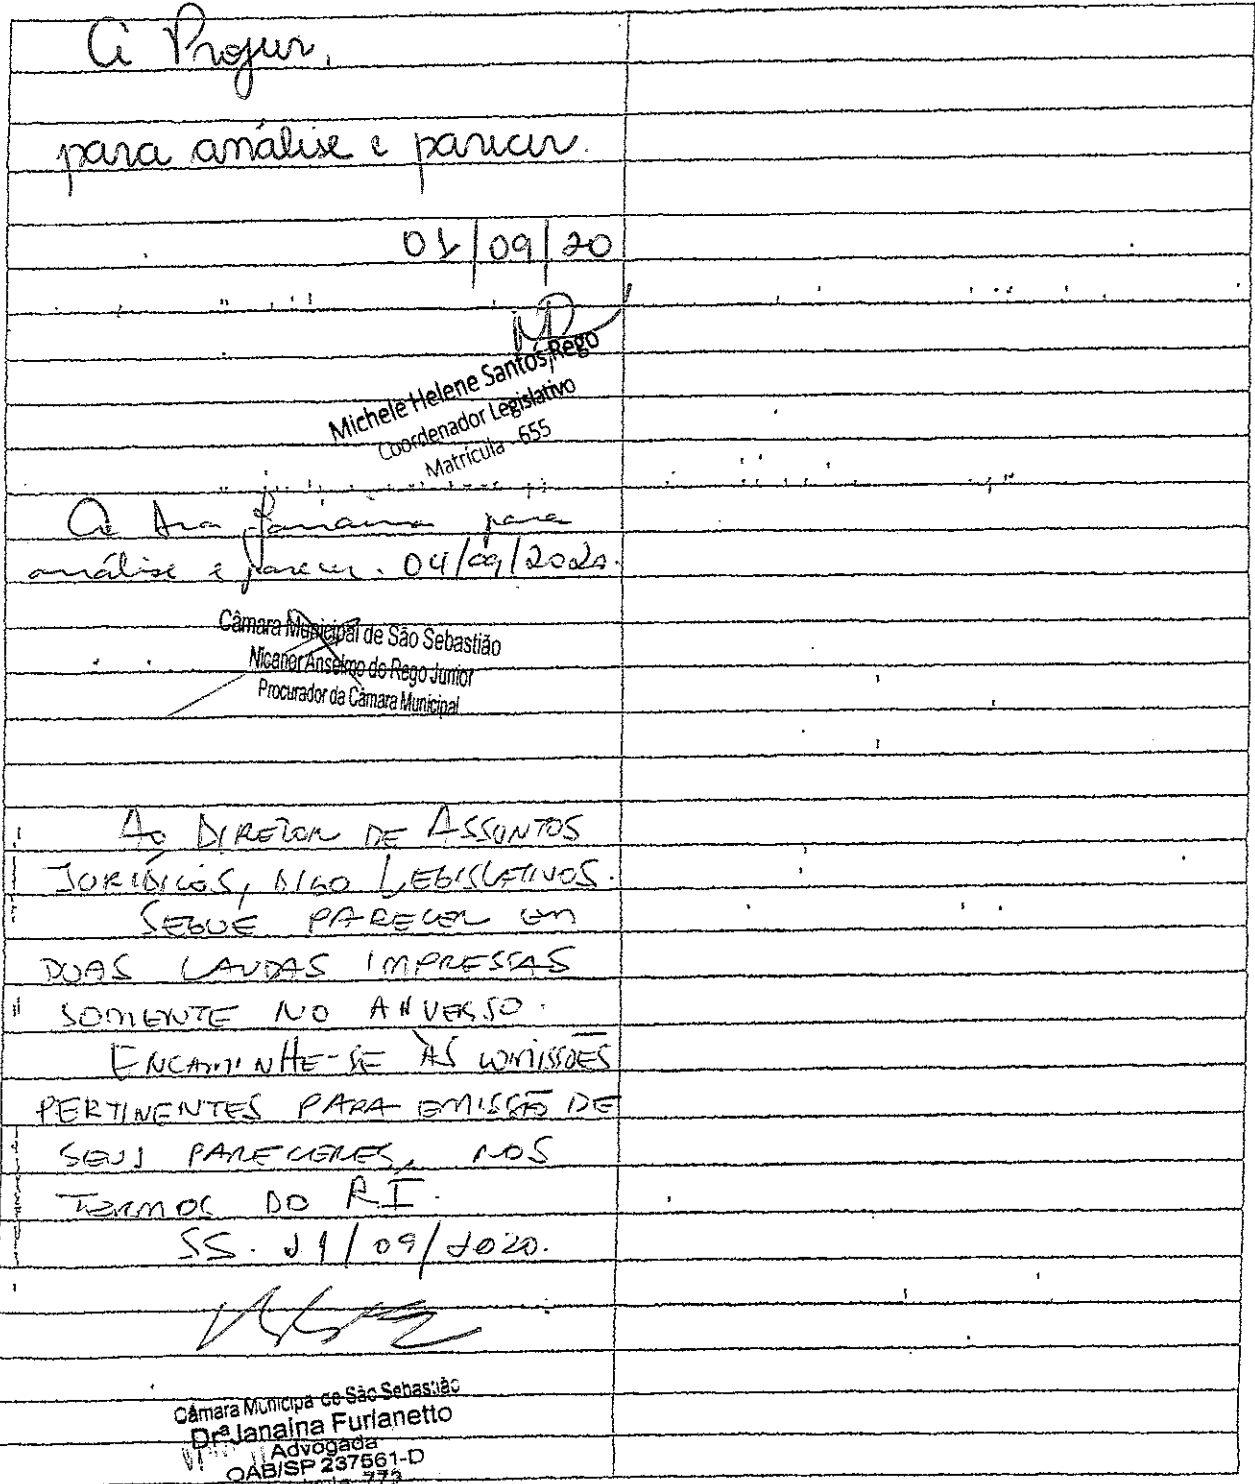 À Projur,
para análise e parecer.
01/09/20
Michele Helene Santos Rego
Coordenador Legislativo
Matrícula - 655
À Dra Janaina para
análise e parecer. 04/09/2020.
Câmara Municipal de São Sebastião
Nicanor Anselmo do Rego Junior
Procurador da Câmara Municipal
Ao DIRETOR DE ASSUNTOS
JURÍDICOS, DIGO LEGISLATIVOS.
SEGUE PARECER EM
DUAS LAUDAS IMPRESSAS
SOMENTE NO ANVERSO.
ENCAMINHE-SE ÀS COMISSÕES
PERTINENTES PARA EMISSÃO DE
SEUS PARECERES, NOS
TERMOS DO RI.
SS. 21/09/2020.
Câmara Municipal de São Sebastião
Drª Janaina Furlanetto
Advogada
OAB/SP 237561-D
773